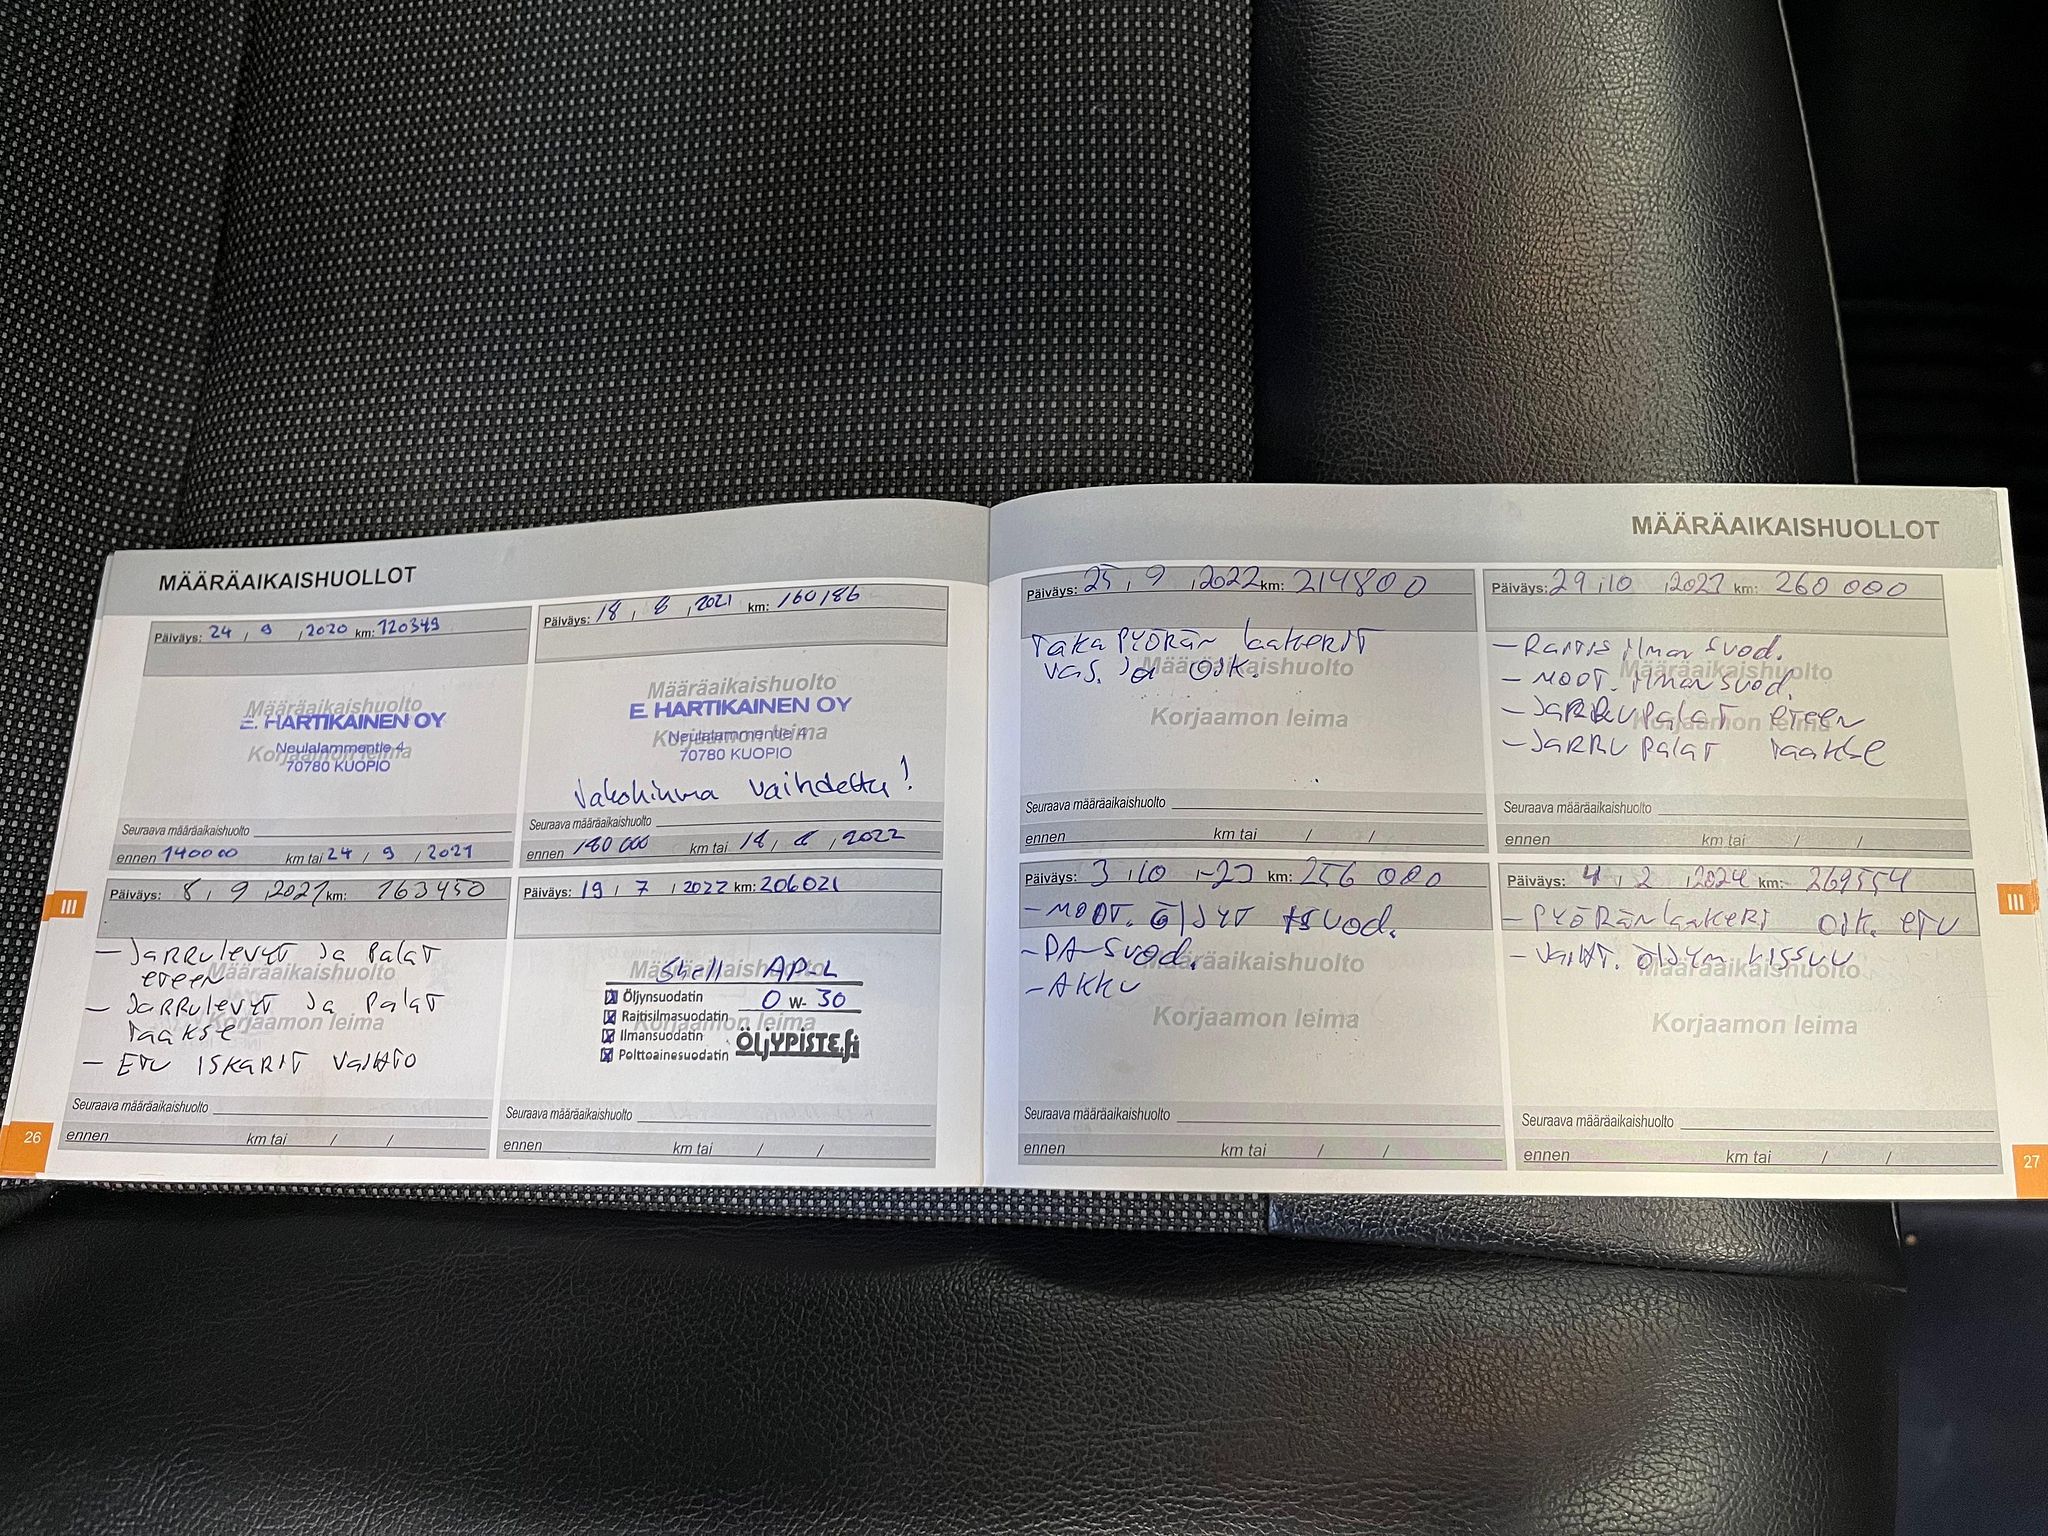 MÄÄRÄAIKAISHUOLLOT
Päiväys: 24 / 9 / 2020 km: 120349
Määräaikaishuolto
E. HARTIKAINEN OY
Neulalammentie 4
Korjaamon leima
70780 KUOPIO
Seuraava määräaikaishuolto
ennen 140000 km tai 24 / 9 / 2021
Päiväys: 18 / 8 / 2021 km: 160186
Määräaikaishuolto
E. HARTIKAINEN OY
Neulalammentie 4
Korjaamon leima
70780 KUOPIO
Jakohihna vaihdettu!
Seuraava määräaikaishuolto
ennen 180 000 km tai 18 / 8 / 2022
Päiväys: 8 / 9 / 2021 km: 163450
- JARRULEVYT JA PALAT
ETEEN
Määräaikaishuolto
- JARRULEVYT JA PALAT
TAAKSE
Korjaamon leima
- ETU ISKARIT VAIHTO
Seuraava määräaikaishuolto
ennen km tai / /
Päiväys: 19 / 7 / 2022 km: 206021
Määräaikaishuolto
Shell AP-L
Öljynsuodatin 0 W- 30
Raitisilmasuodatin
Korjaamon leima
Ilmansuodatin ÖLJYPISTE.fi
Polttoainesuodatin
Seuraava määräaikaishuolto
ennen km tai / /
III
26
MÄÄRÄAIKAISHUOLLOT
Päiväys: 25 / 9 / 2022 km: 214800
TAKA PYÖRÄN LAAKERIT
VAS. JA OIK.
Määräaikaishuolto
Korjaamon leima
Seuraava määräaikaishuolto
ennen km tai / /
Päiväys: 29 / 10 / km: 260 000
- RAITIS ilman SUOD.
Määräaikaishuolto
- MOOT. ilman SUOD.
- JARRU PALAT ETEEN
Korjaamon leima
- JARRU PALAT TAAKSE
Seuraava määräaikaishuolto
ennen km tai / /
Päiväys: 3 / 10 -23 km: 256 000
- MOOT. ÖLJYT SUOD.
- PA-SUOD.
Määräaikaishuolto
- AKKU
Korjaamon leima
Seuraava määräaikaishuolto
ennen km tai / /
Päiväys: 4 / 2 / 2024 km: 269554
- PYÖRÄNLAAKERI OIK. ETU
Määräaikaishuolto
Korjaamon leima
Seuraava määräaikaishuolto
ennen km tai / /
III
27